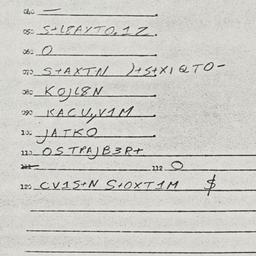 040 —
050 S+L8AYTO,1Z.
060 O
070 S+AXTN )+S+X1QTO-
080 KOJL8N
090 KACU,,V1M
100 JATKO
110 OSTPAJB3R+
111 112 O
120 CV1S+N S+OXT1M $